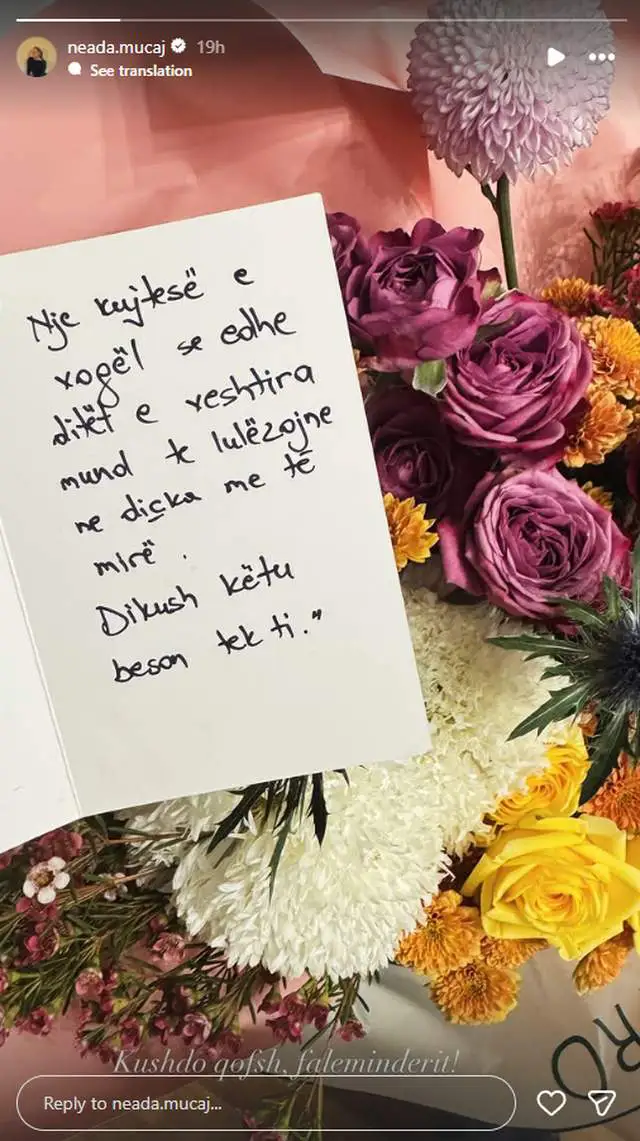 neada.mucaj 19h
See translation
Nje kujtesë e
vogël se edhe
ditët e veshtira
mund te lulëzojne
ne diçka me të
mirë.
Dikush këtu
beson tek ti."
RO
Kushdo qofsh, faleminderit!
Reply to neada.mucaj...